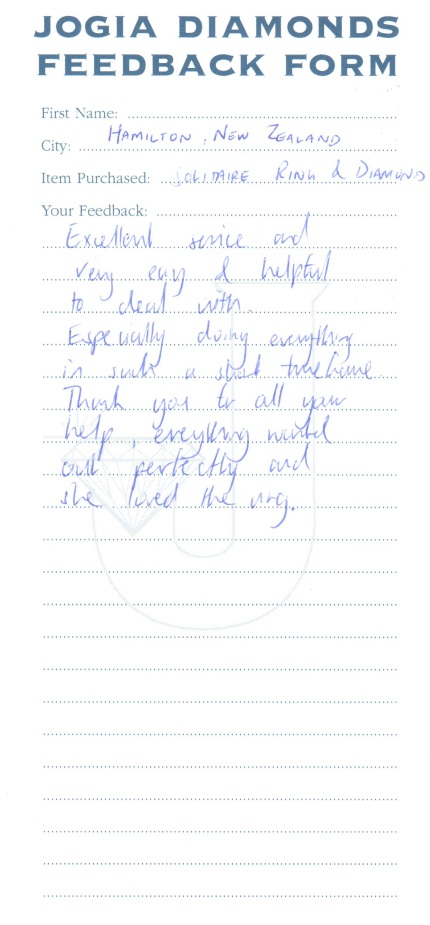 JOGIA DIAMONDS
FEEDBACK FORM
First Name:
City: HAMILTON, NEW ZEALAND
Item Purchased: SOLITAIRE RING & DIAMOND
Your Feedback:
Excellent service and
very easy & helpful
to deal with.
Especially doing everything
in such a short timeframe.
Thank you for all your
help, everything worked
out perfectly and
she loved the ring.